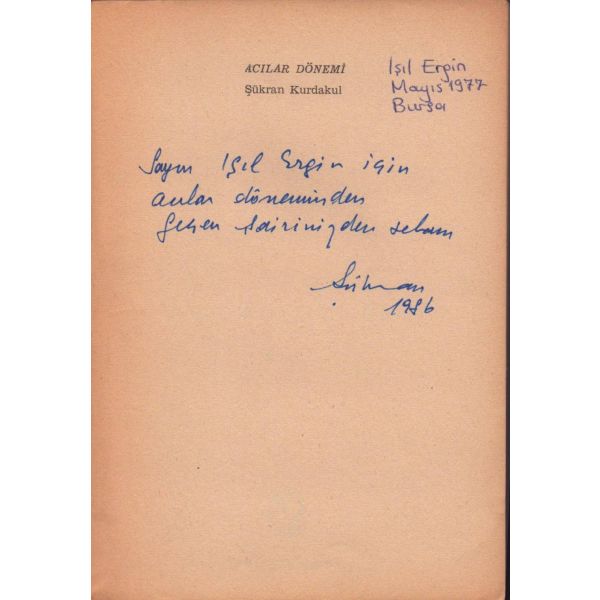 ACILAR DÖNEMİ
Şükran Kurdakul
Işıl Ergin
Mayıs 1977
Bursa
Sayın Işıl Ergin için
acılar döneminden
geçen şairinizden selam
Şükran
1986